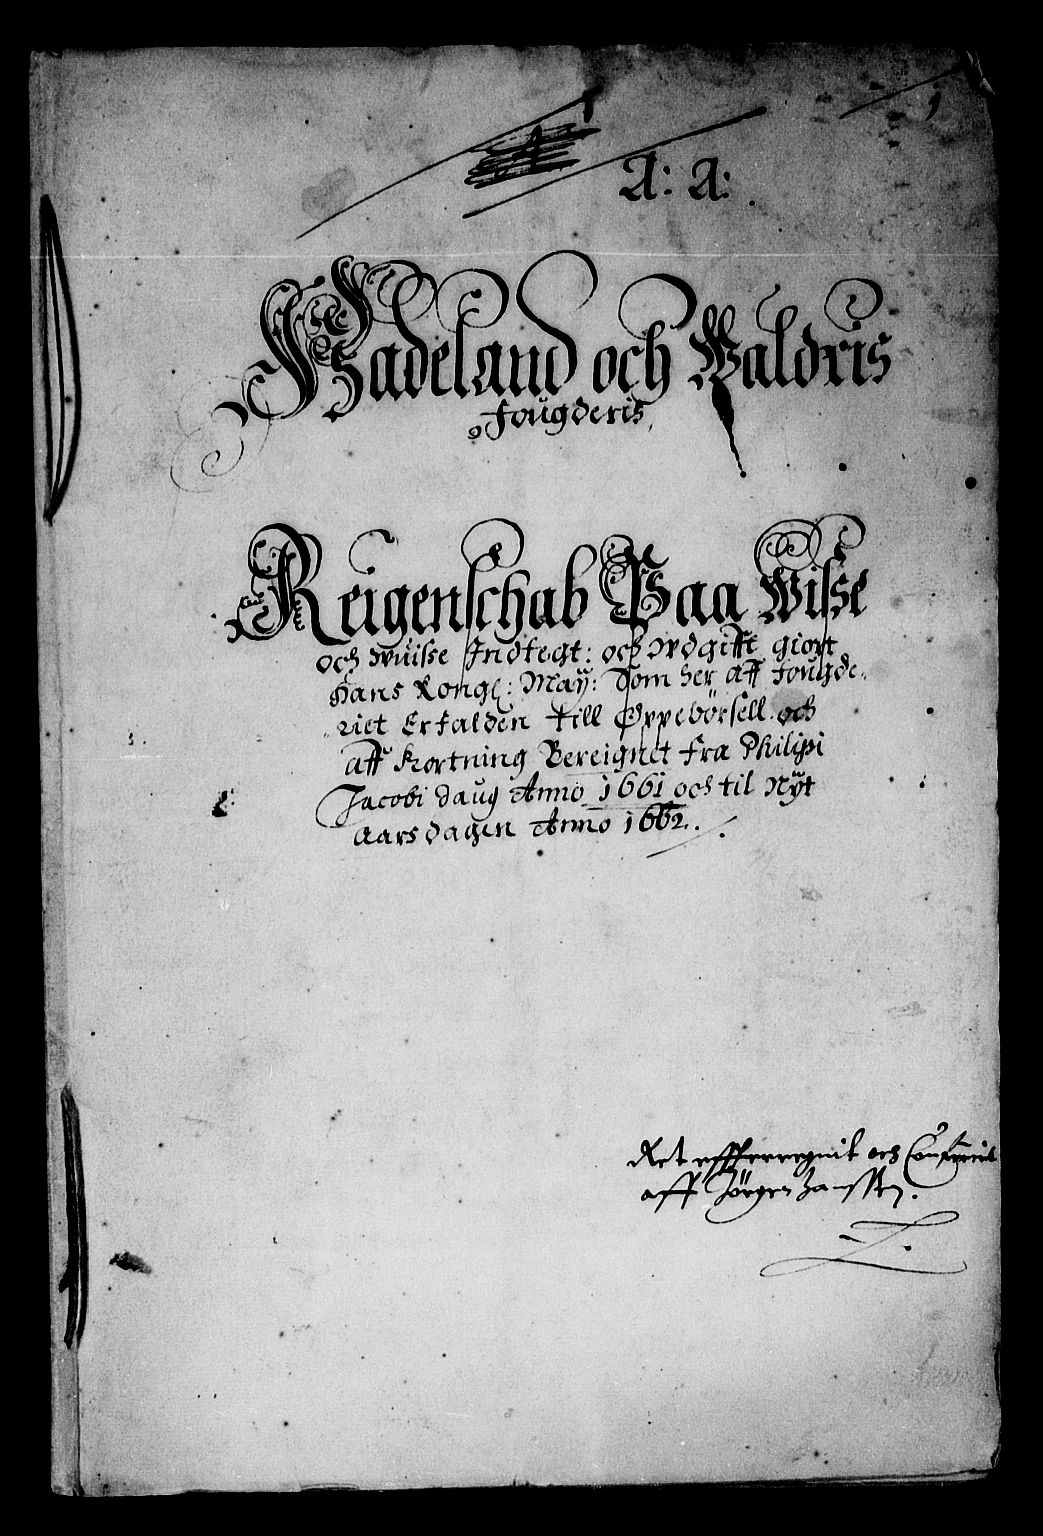 1
A: A:
Hadeland och Waldris
fougderis,
Reigenschab Paa Wisse
och Wuisse Indtegt: och Wdgifft giort
Hans Kongl: May: Som her aff fougde-
riet Erfalden till Oppebörsell och
aff Kortning Bereignet fra Philipi
Jacobi daug Anno 1661 och til Nyt
aars dagen Anno 1662.
Ret effterregnit och
aff Jörgen Janssen.